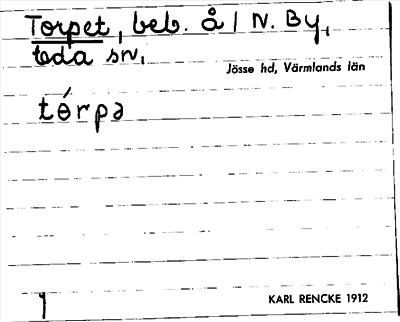 Torpet, beb. å 1 N. By,
Eda sn,
Jösse hd, Värmlands län
tɵ́rpə
KARL RENCKE 1912